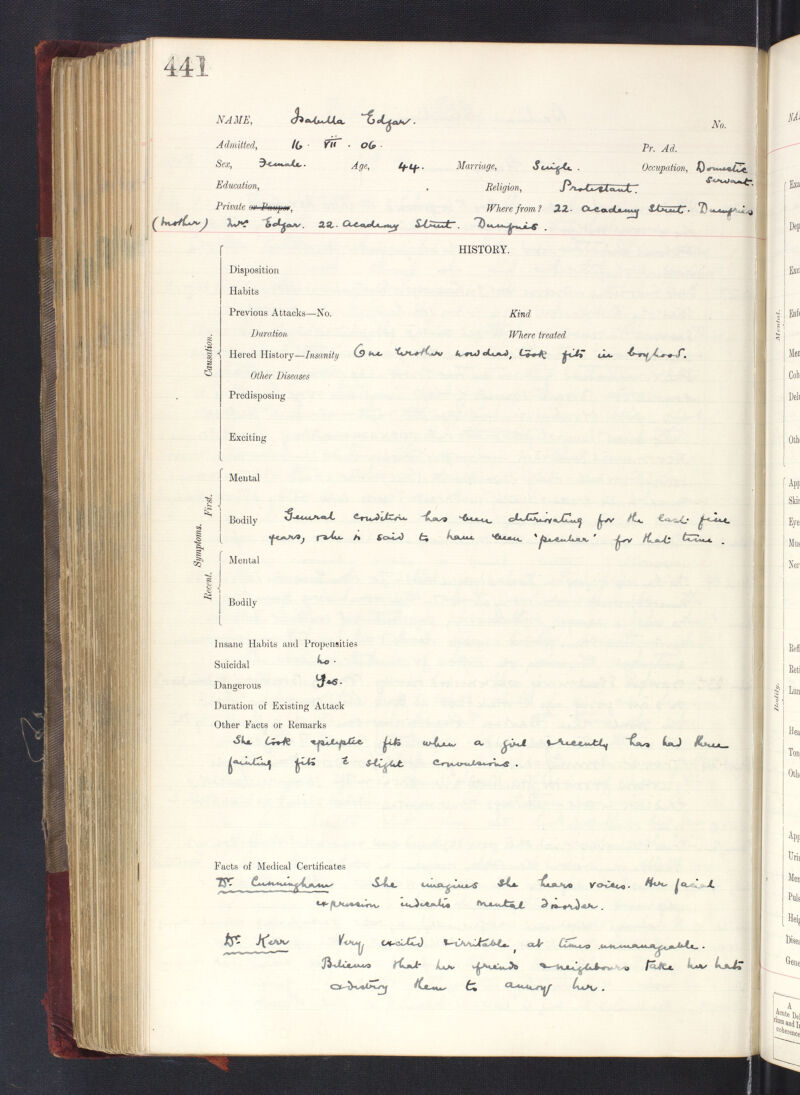 441
NAME, Isabella Edgar. No.
Admitted, 16. VII. 06. Pr. Ad.
Sex, Female. Age, 44. Marriage, Single. Occupation, Domestic
Servant.
Education, Religion, Protestant.
Private or Pauper, Where from? 22. Academy Street. Dumfries
(Mother) Mrs. Edgar. 22. Academy Street. Dumfries.
HISTORY.
Causation.
Disposition
Habits
Previous Attacks—No. Kind
Duration Where treated
Hered History—Insanity One brother now dead, took fits in boyhood.
Other Diseases
Predisposing
Exciting
Symptoms.
First.
Mental
Bodily General condition has been deteriorating for the last five
years, & she is said to have been 'peculiar' for that time.
Recent.
Mental
Bodily
Insane Habits and Propensities
Suicidal No.
Dangerous Yes.
Duration of Existing Attack
Other Facts or Remarks
She took epileptic fits when a girl & recently has had three
fainting fits & slight convulsions.
Facts of Medical Certificates
Dr. Cunningham She imagines she hears voices. Her facial
expression indicates mental disorder.
Dr. Kerr Very excited & irritable, at times unmanageable.
Believes that her friends & neighbours take her hats
& destroy them to annoy her.
NA
Exa
Dep
Exc
Enf
Mental.
Mem
Coh
Delu
Oth
App
Skin
Eye
Mus
Ner
Refl
Reti
Lun
Bodily.
Hea
Ton
Oth
App
Urin
Men
Puls
Heig
Disea
Gene
A
Acute Del
rium and In
coherence